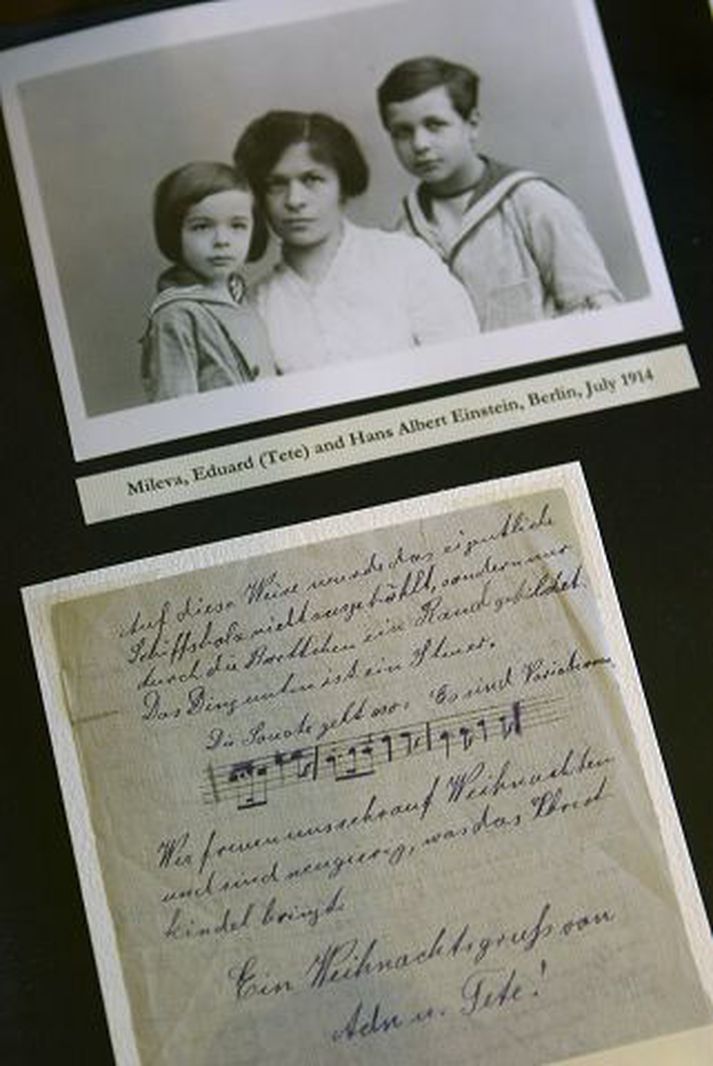 Mileva, Eduard (Tete) and Hans Albert Einstein, Berlin, July 1914
Auf diese Weise wurde das eigentliche
Schiffsholz nicht ausgehöhlt, sondern nur
durch die Brettchen ein Rand gebildet.
Das Ding unten ist ein Steuer.
Die Sonate geht so: Es sind Variationen
Wir freuen uns sehr auf Weihnachten
und sind neugierig, was das Christ
kindel bringt.
Ein Weihnachtsgruß von
Adn u. Tete!